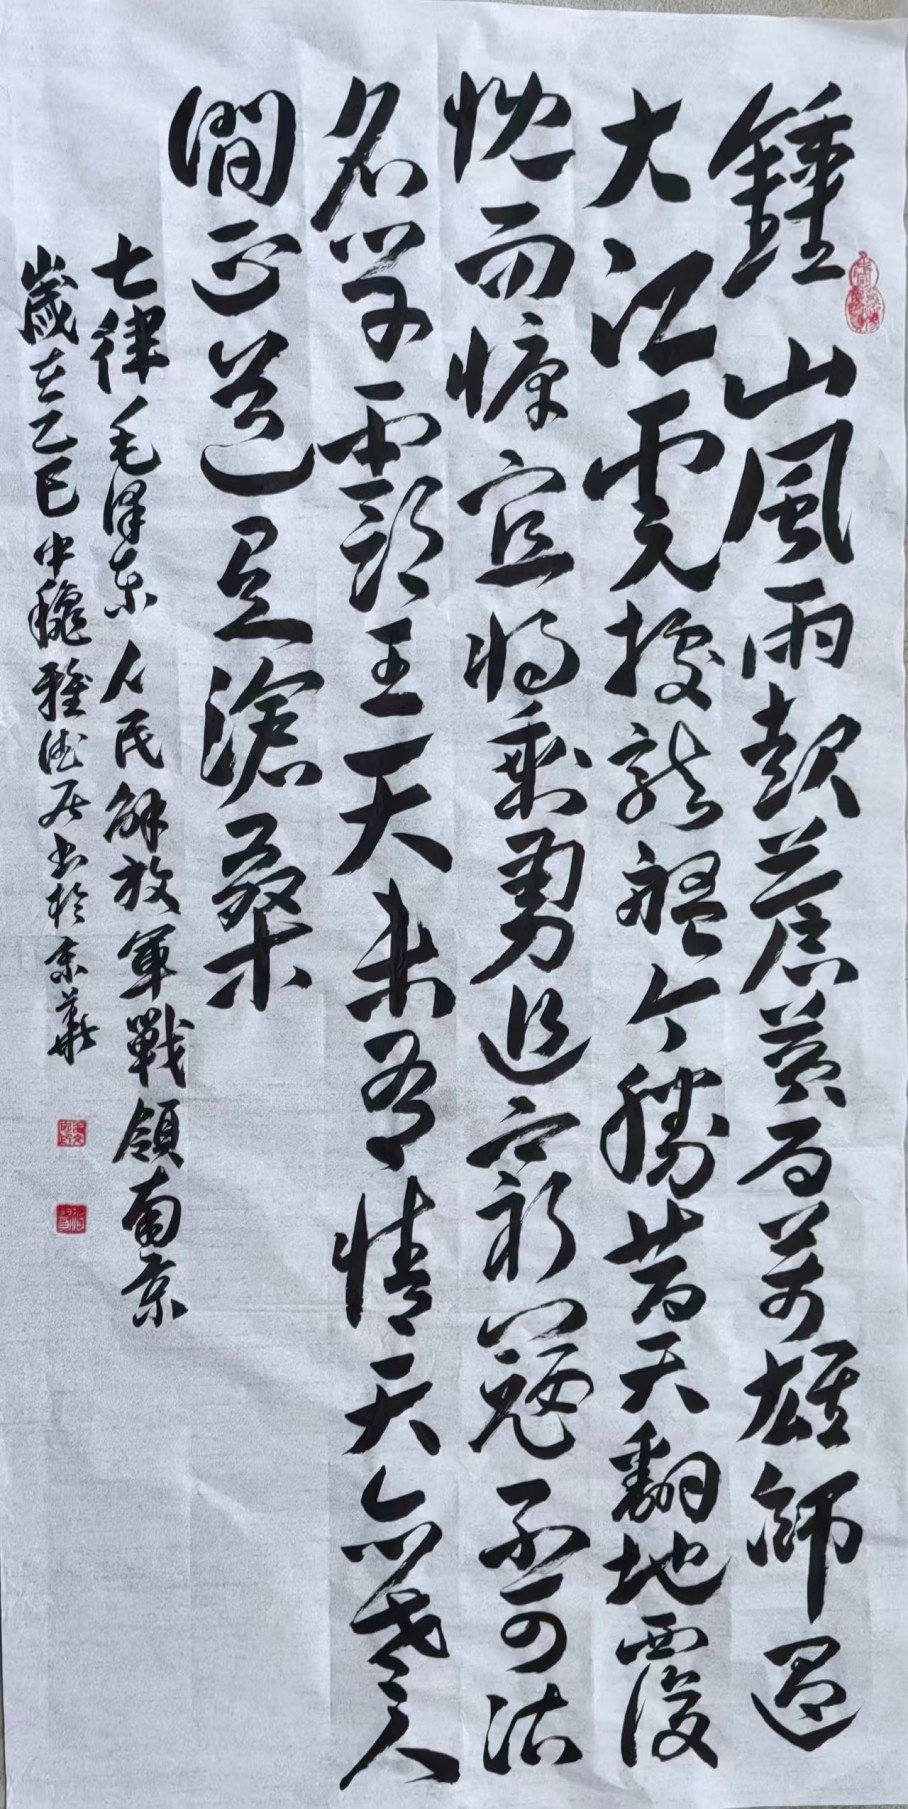 鍾山風雨起蒼黄百萬雄師過
大江虎據龍盤今勝昔天翻地覆
慨而慷宜將剩勇追窮寇不可沽
名學霸王天未有情天亦老人
間正道是滄桑
七律毛泽东人民解放軍戰領南京
歲在乙巳中龝雅德居书於京華